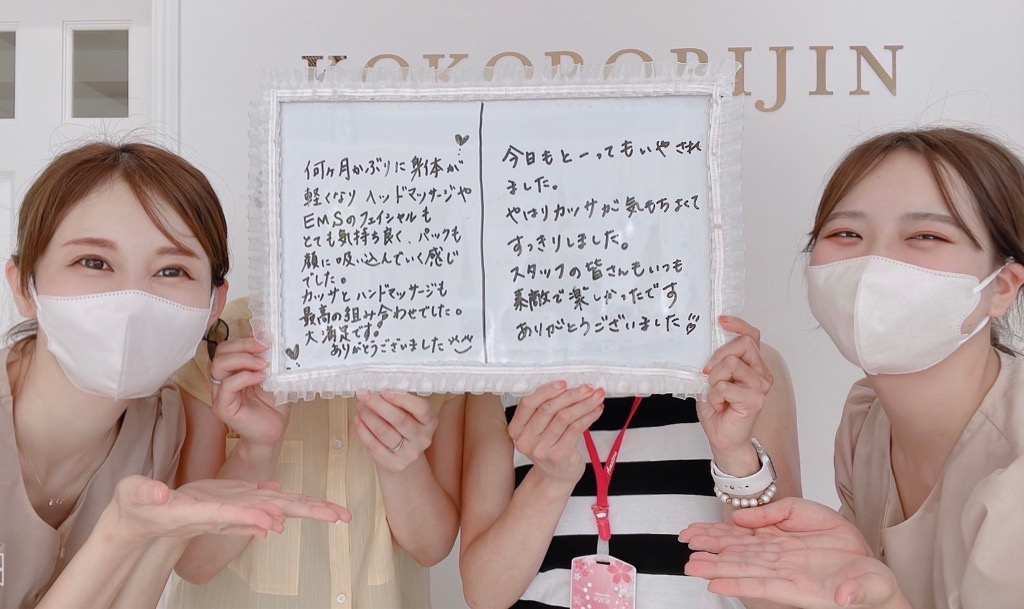 KOKOROBIJIN
何ヶ月かぶりに身体が
軽くなり ヘッドマッサージや
EMSのフェイシャルも
とても気持ち良く、パックも
顔に吸い込んでいく感じ
でした。
カッサとハンドマッサージも
最高の組み合わせでした。
大満足です。
ありがとうございました
今日もとーってもいやされ
ました。
やはりカッサが気もちよくて
すっきりしました。
スタッフの皆さんもいつも
素敵で楽しかったです
ありがとうございました